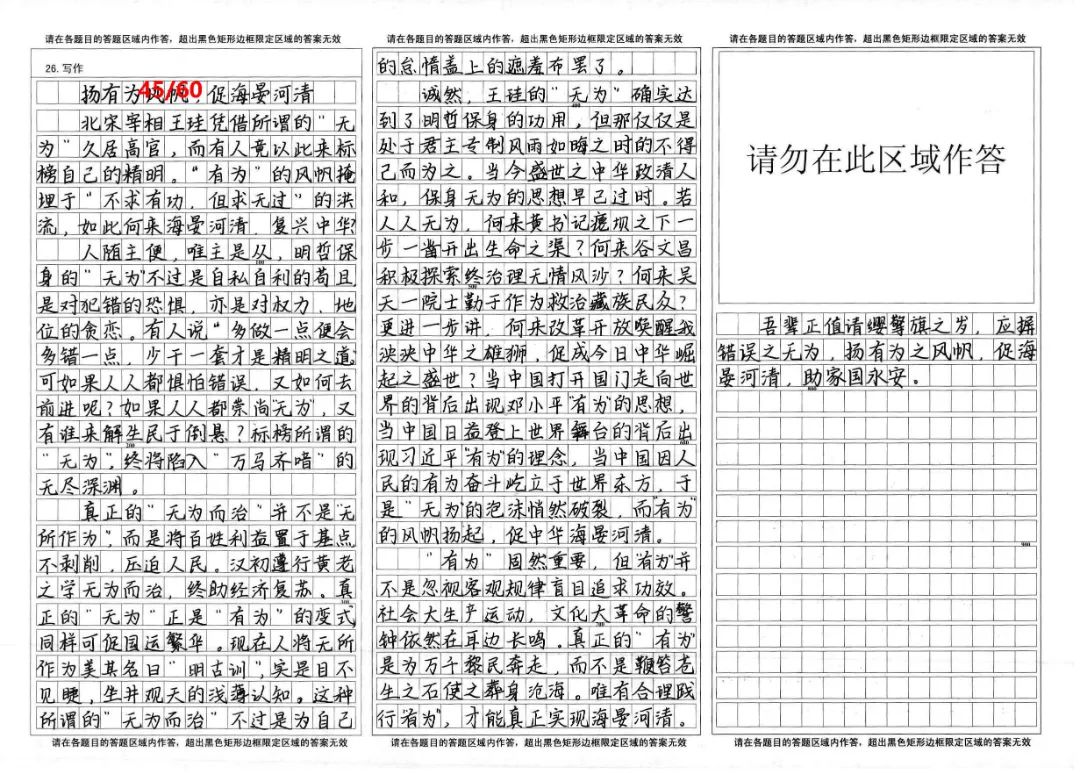 请在各题目的答题区域内作答，超出黑色矩形边框限定区域的答案无效
26. 写作
45/60
扬有为风帆，促海晏河清
北宋宰相王珪凭借所谓的“无
为”久居高官，而有人竟以此来标
榜自己的精明。“有为”的风帆掩
埋于“不求有功，但求无过”的洪
流，如此何来海晏河清，复兴中华？
人随主便，唯主是从，明哲保
身的“无为”不过是自私自利的苟且，
是对犯错的恐惧，亦是对权力、地
位的贪恋。有人说“多做一点便会
多错一点，少干一套才是精明之道”
可如果人人都惧怕错误，又如何去
前进呢？如果人人都崇尚“无为”，又
有谁来解生民于倒悬？标榜所谓的
“无为”，终将陷入“万马齐喑”的
无尽深渊。
真正的“无为而治”并不是“无
所作为”，而是将百姓利益置于基点
不剥削，压迫人民。汉初遵行黄老
之学无为而治，终助经济复苏。真
正的“无为”正是“有为”的变式，
同样可促国运繁华。现在人将无所
作为美其名曰“明古训”，实是目不
见睫，坐井观天的浅薄认知。这种
所谓的“无为而治”不过是为自己
请在各题目的答题区域内作答，超出黑色矩形边框限定区域的答案无效
请在各题目的答题区域内作答，超出黑色矩形边框限定区域的答案无效
的怠惰盖上的遮羞布罢了。
诚然，王珪的“无为”确实达
到了明哲保身的功用，但那仅仅是
处于君主专制风雨如晦之时的不得
已而为之。当今盛世之中华政清人
和，保身无为的思想早已过时。若
人人无为，何来黄书记瘗坝之下一
步一凿开出生命之渠？何来谷文昌
积极探索终治理无情风沙？何来吴
天一院士勤于作为救治藏族民众？
更进一步讲，何来改革开放唤醒我
泱泱中华之雄狮，促成今日中华崛
起之盛世？当中国打开国门走向世
界的背后出现邓小平“有为”的思想，
当中国日益登上世界舞台的背后出
现习近平“有为”的理念，当中国因人
民的有为奋斗屹立于世界东方，于
是“无为”的泡沫悄然破裂，而“有为”
的风帆扬起，促中华海晏河清。
“有为”固然重要，但“有为”并
不是忽视客观规律盲目追求功效。
社会大生产运动，文化大革命的警
钟依然在耳边长鸣。真正的“有为”
是为万千黎民奔走，而不是鞭笞苍
生之石使之葬身沧海。唯有合理践
行“有为”，才能真正实现海晏河清。
请在各题目的答题区域内作答，超出黑色矩形边框限定区域的答案无效
请在各题目的答题区域内作答，超出黑色矩形边框限定区域的答案无效
请勿在此区域作答
吾辈正值请缨擎旗之岁，应摒
错误之无为，扬有为之风帆，促海
晏河清，助家国永安。
请在各题目的答题区域内作答，超出黑色矩形边框限定区域的答案无效